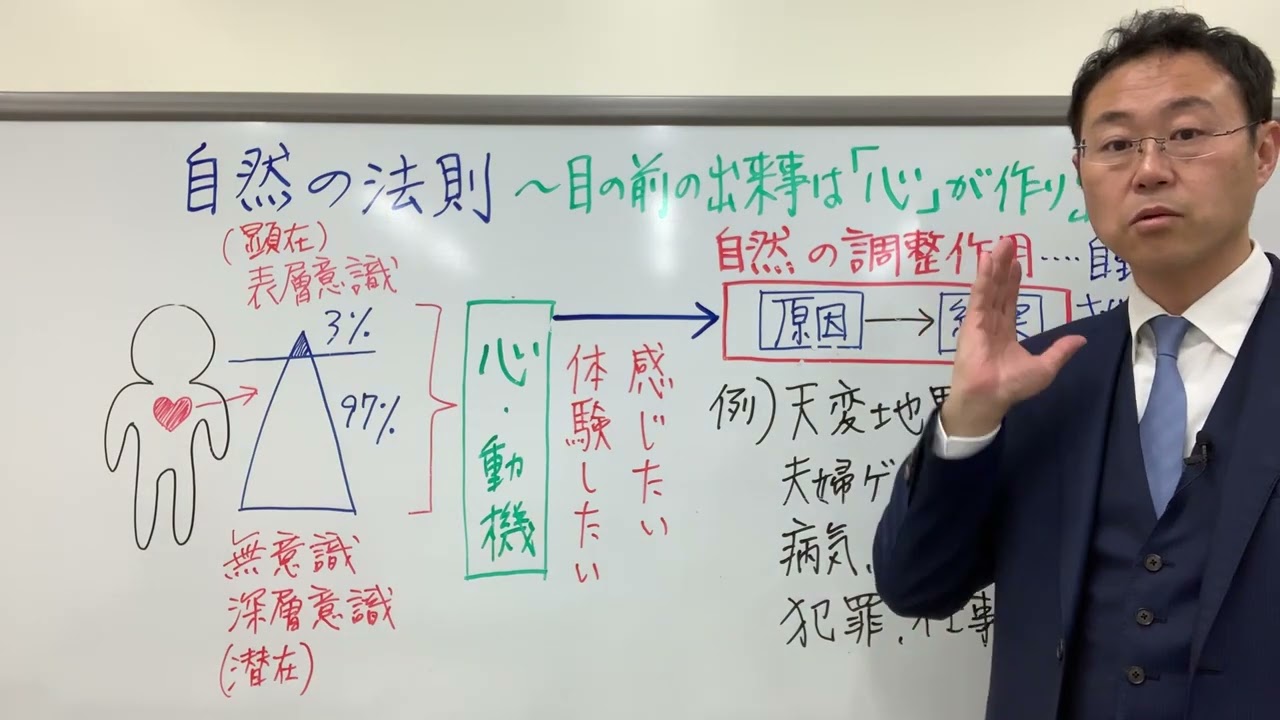 自然の法則 〜目の前の出来事は「心」が作り
(顕在)
表層意識
3%
97%
無意識
深層意識
(潜在)
心・動機
感じたい
体験したい
自然の調整作用‥‥
原因
例)天変地
夫婦ゲ
病気、
犯罪、仕事